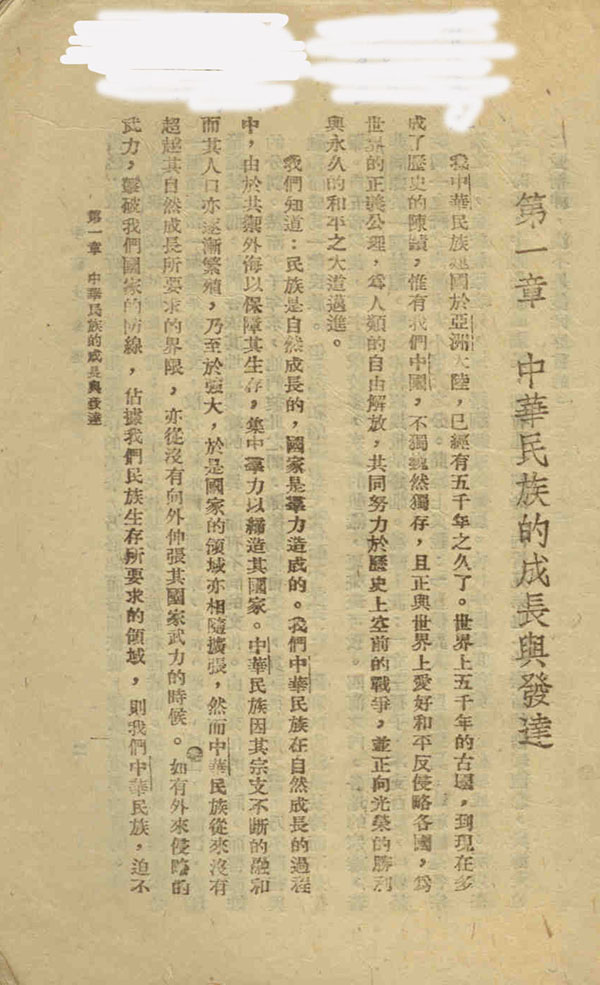 第一章　中華民族的成長與發達
我中華民族建國於亞洲大陸，已經有五千年之久了。世界上五千年的古國，到現在多
成了歷史的陳蹟，惟有我們中國，不獨巍然獨存，且正與世界上愛好和平反侵略各國，爲
世界的正義公理，爲人類的自由解放，共同努力於歷史上空前的戰爭，並正向光榮的勝利
與永久的和平之大道邁進。
我們知道：民族是自然成長的，國家是羣力造成的。我們中華民族在自然成長的過程
中，由於共禦外侮以保障其生存，集中羣力以締造其國家。中華民族因其宗支不斷的融和
而其人口亦逐漸繁殖，乃至於強大，於是國家的領域亦相隨擴張，然而中華民族從來沒有
超越其自然成長所要求的界限，亦從沒有向外伸張其國家武力的時候。如有外來侵略的
武力，擊破我們國家的防線，佔據我們民族生存所要求的領域，則我們中華民族，迫不
第一章　中華民族的成長與發達
一